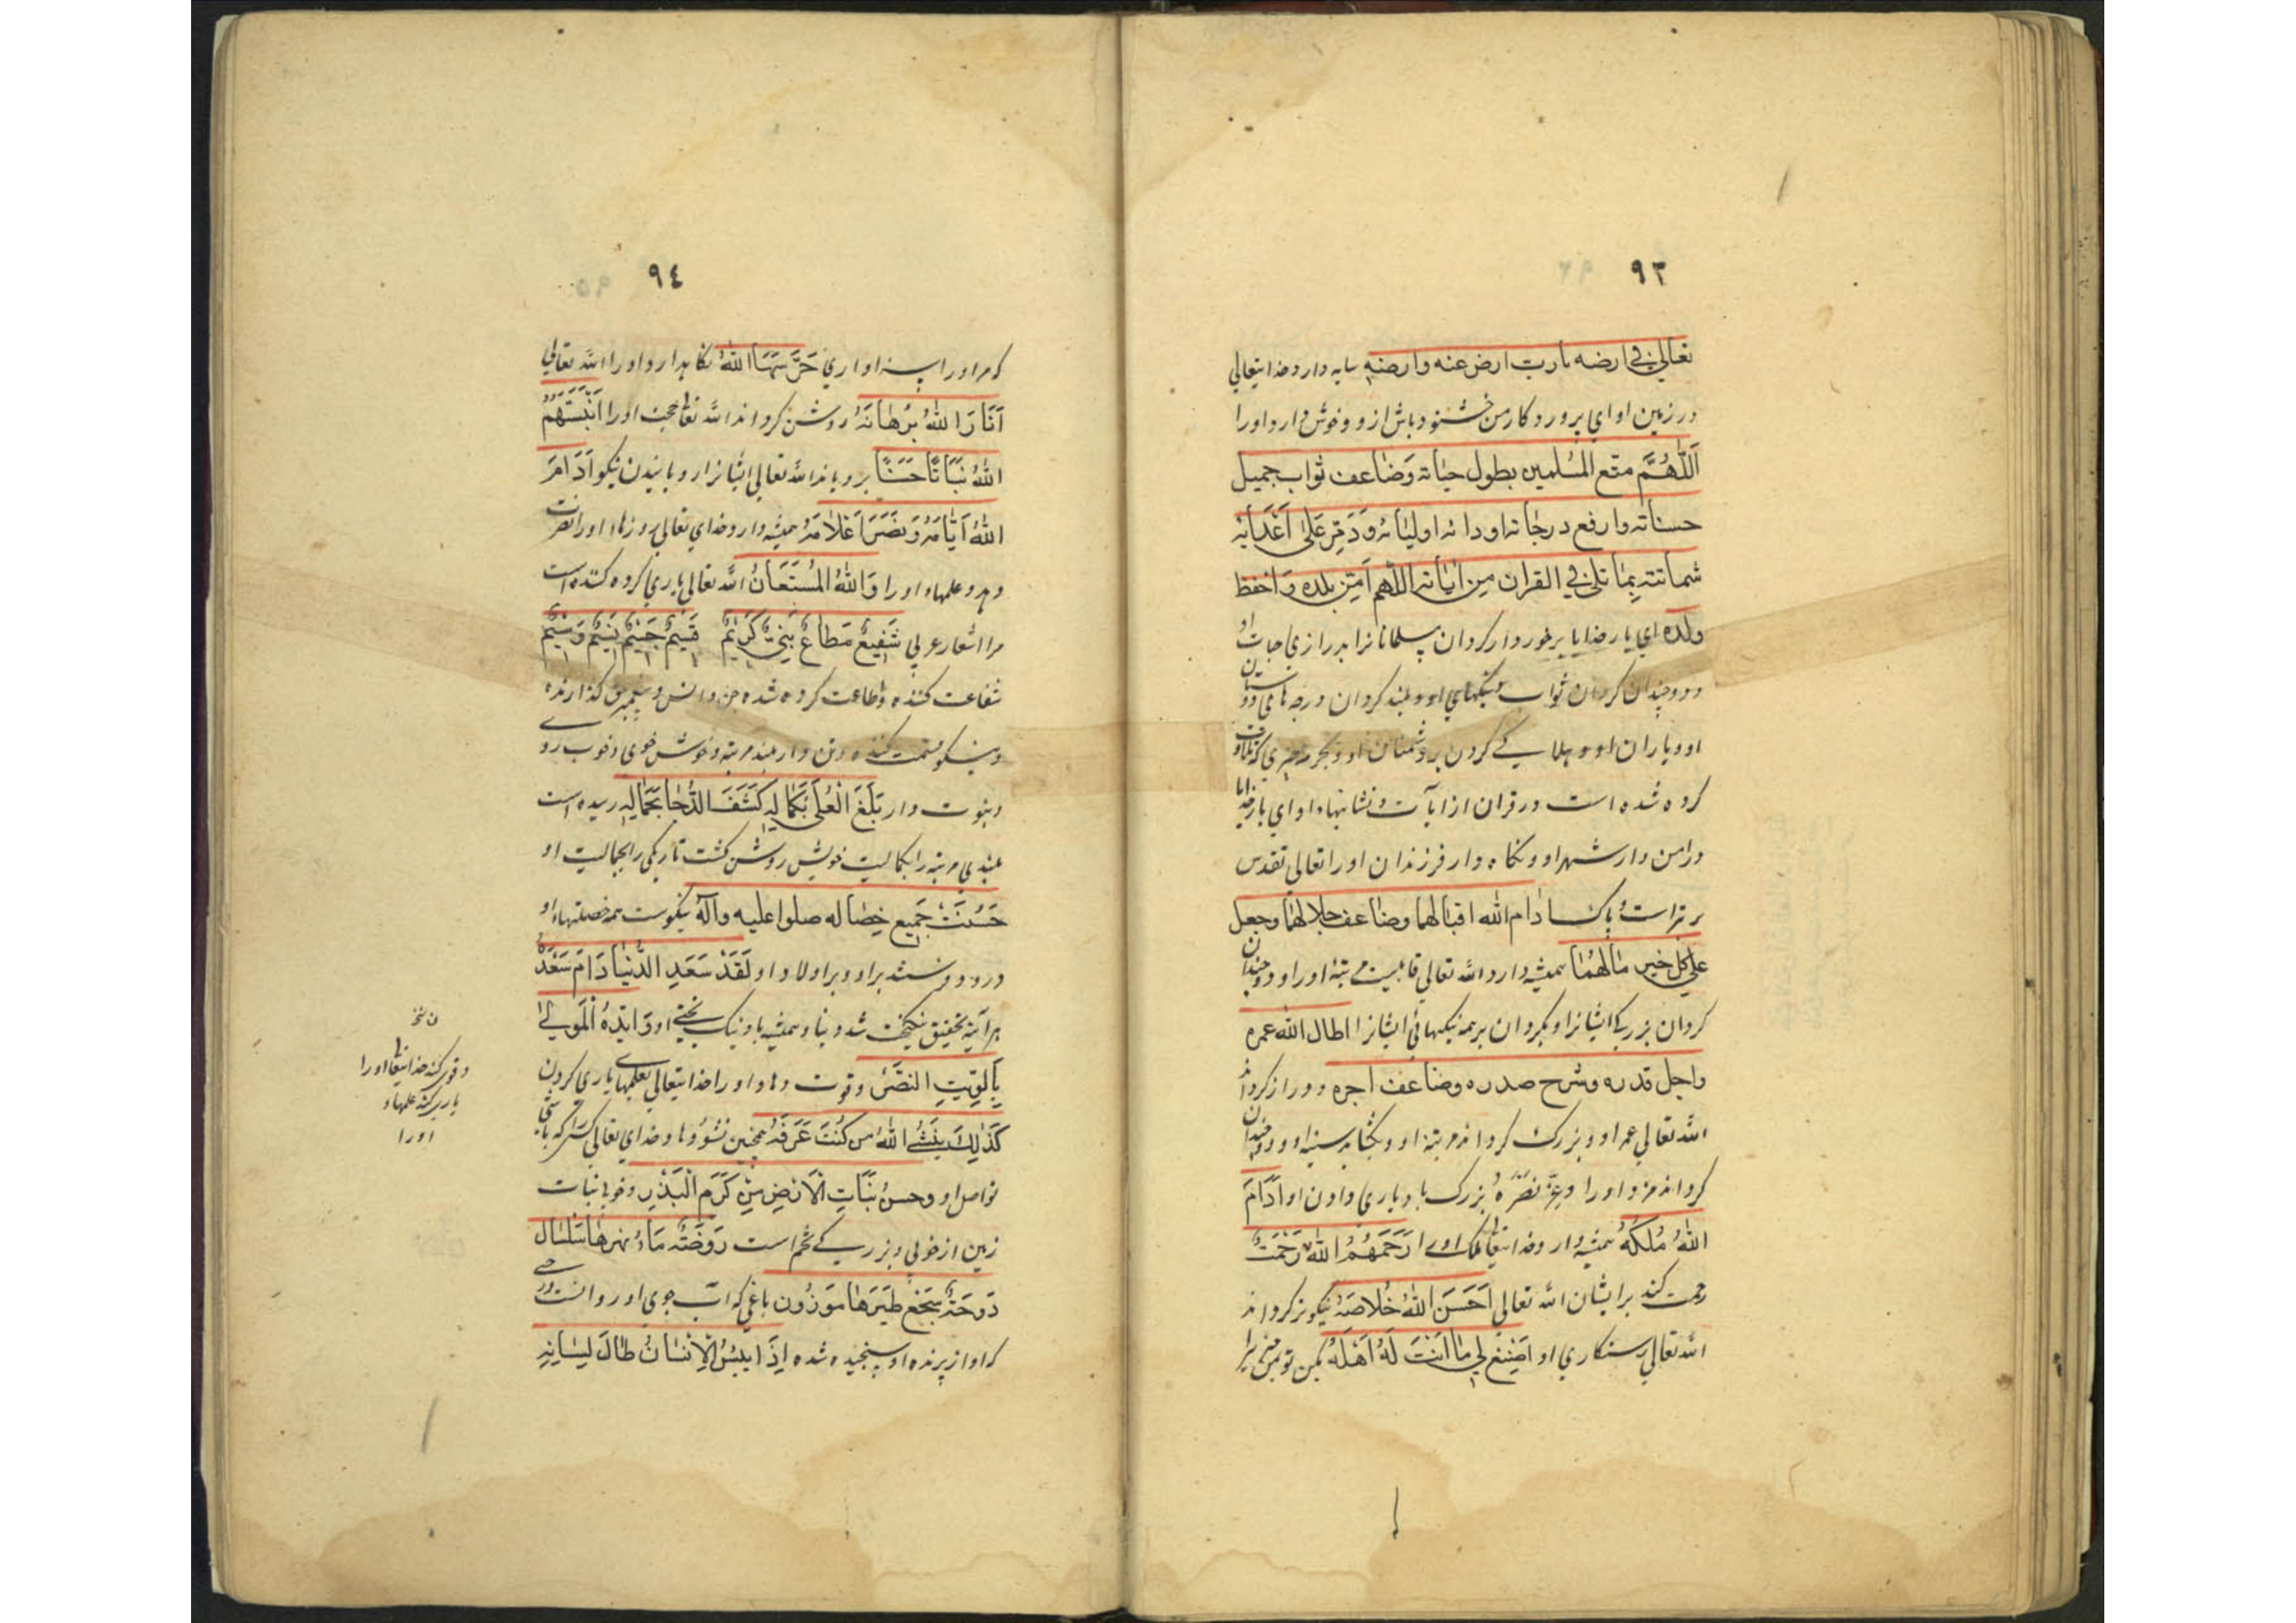 ٩٣
تعالي في ارضه يا رب ارض عنه وارضه سايه دارد خدايتعالي
در زمين او اي پروردكار من خشنود باش ازو و خوش دار او را
اَللّٰهُمَّ متع المسلمين بطول حياته وَضاعف ثواب جميل
حسناته وارفع درجاته اودائه اوليائه وَدَمِّر عَلٰى اَعْدَائِه
شمائته بِمٰا تلي في القران مِن اٰياته اللّٰهم اٰمِن بلده وَاحفظ
ولده اي بار خدايا برخوردار كردان مسلمانانرا بدرازي حيات او
ودوچندان كردان ثواب نيكيهاي او و بلند كردان درجه هاي دوستان
او و ياران او و هلاكي كردن بر دشمنان او و بحرمة چيزي كه تلاوت
كرده شده است در قران از ايات و نشانيهاء او اي بارخدايا
در امن دار شهر او و نكاه دار فرزندان او را تعالي تقدس
برتراست و پاكست ادام الله اقبالهما وضاعف جلالهما وجعل
علي كل خير مٰالهُمٰا هميشه دارد الله تعالي قابليت مرتبه او را و دوچندان
كردان بزركي ايشانرا و بكردان بر همه نيكيهائي ايشانرا اطال الله عمره
واجل قدره وشرح صدره وضاعف اجره دور از كرداند
الله تعالي عمر او و بزرك كرداند مرتبه او و بكشايد سينه او و دوچندان
كرداند مزد او را وعِزّ نَصْرُهُ بزرك باد ياري دادن او اَدَامَ
اللّٰهُ مُلكَهُ هميشه دارد خدايتعالي ملك او را رَحَمَهُمُ اللّٰهُ رَحْمَتُ
رحمت كند برايشان الله تعالي اَحْسَنَ اللّٰهُ خَلاصَهُ نيكوتر كرداند
الله تعالي رستكاري او اِصْنِعْ لِي مٰا اَنْتَ لَهُ اَهْلَهُ بكن تو بمن چيزيرا
٩٤
كه مر او را سزاواري حَرَسَهَا اللّٰهُ نكاهدارد او را الله تعالي
اَنَارَ اللّٰهُ بُرْهَانَهُ روشن كرداند الله تعا حجت او را اَنْبَتَهُمُ
اللّٰهُ نَبَاتًا حَسَنًا بروياند الله تعالي ايشانرا رويانيدن نيكو اَدَامَرَ
اللّٰهُ اَيّٰامَهُ وَنَصَرَ اَعْلَامَهُ هميشه دارد خداي تعالي روزهاء او را و نصرت
دهد و علمهاء او را وَاللّٰهُ المُسْتَعَانُ الله تعالي ياري كرده كننده است
مر اشعار عربي شَفِيعٌ مُطاعٌ نَبِيٌّ كَرِيمٌ قَسِيمٌ جَسِيمٌ نَسِيمٌ وَسِيمٌ
شفاعت كننده و طاعت كرده شده جن وانس و پيغمبر كذارنده
و نيكو قسمت كننده و تن دار بلند مرتبه و خوش خوي و خوب رو
و نبوت دار بَلَغَ العُلٰى بِكَمَالِهِ كَشَفَ الدُّجٰا بِجَمَالِهِ رسيده است
بلندي مرتبه را بكماليت خويش روشن كشت تاريكي را بجماليت او
حَسُنَتْ جَمِيع خِصٰاله صلوا عليه وآله نيكوست همه خصلتهاء او
درود و فرستند بر او و بر اولاد او لَقَدْ سَعَدِ الدُّنْيٰا دَامَ سَعْدُهُ
هرآينه تحقيق نيكبخت شد دنيا و هميشه باد نيك بختي او وَاَيَّدَهُ الْمَوْلٰى
بِاَلْوِيَتِ النَّصْرُ وقوت دهاد او را خدايتعالي بعلمهاء ياري كردن
كَذٰلِكَ يَنْشُئُ اللّٰهُ من كُنْتَ عَرَقَهُ همچنين نشو دهاد خداي تعالي كسرا كه باشي
تو اصل او وحسن نَبَاتِ الْاَرْضِ مِنْ كَرَمِ الْبَذْرِ وخوبي نبات
زمين از خوبي و بزركي تخم است رَوْضَتُهُ مَاءُ نَهرهٰا سَلْسٰال
دَوحَتُهُ سَجَعْ طَيْرهٰا مَوزُون باغي كه اب جوي او روانست درختي
كه اواز پرنده او سنجيده شده اِذَا يَئِسُ الْاِنْسَانُ طٰالَ لِسَانِهِ
ن نخ
وقوي كند خدايتعا او را
ياري كند علمهاء
او را